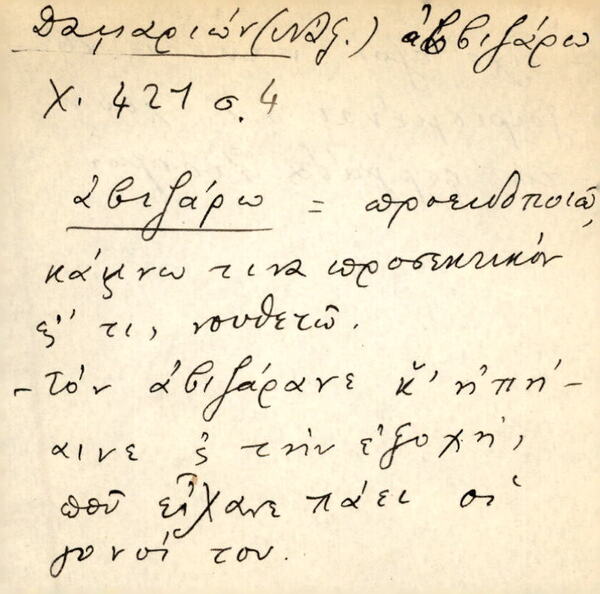 Δαμαριών (Νάξ.) ἀβιζάρω
Χ. 421 σ. 4
ἀβιζάρω = προειδοποιῶ,
κάμνω τινα προσεκτικόν
εἰς τι, νουθετῶ.
- Τόν ἀβιζάρανε κ' ἠπή-
αινε ς τὴν ἐξοχή,
ποῦ εἴχανε πάει οἱ
γονοί του.